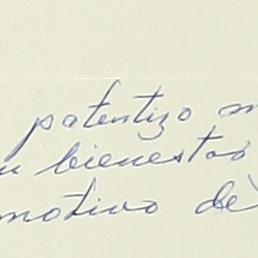 patentizo m
u bienestar
motivo de